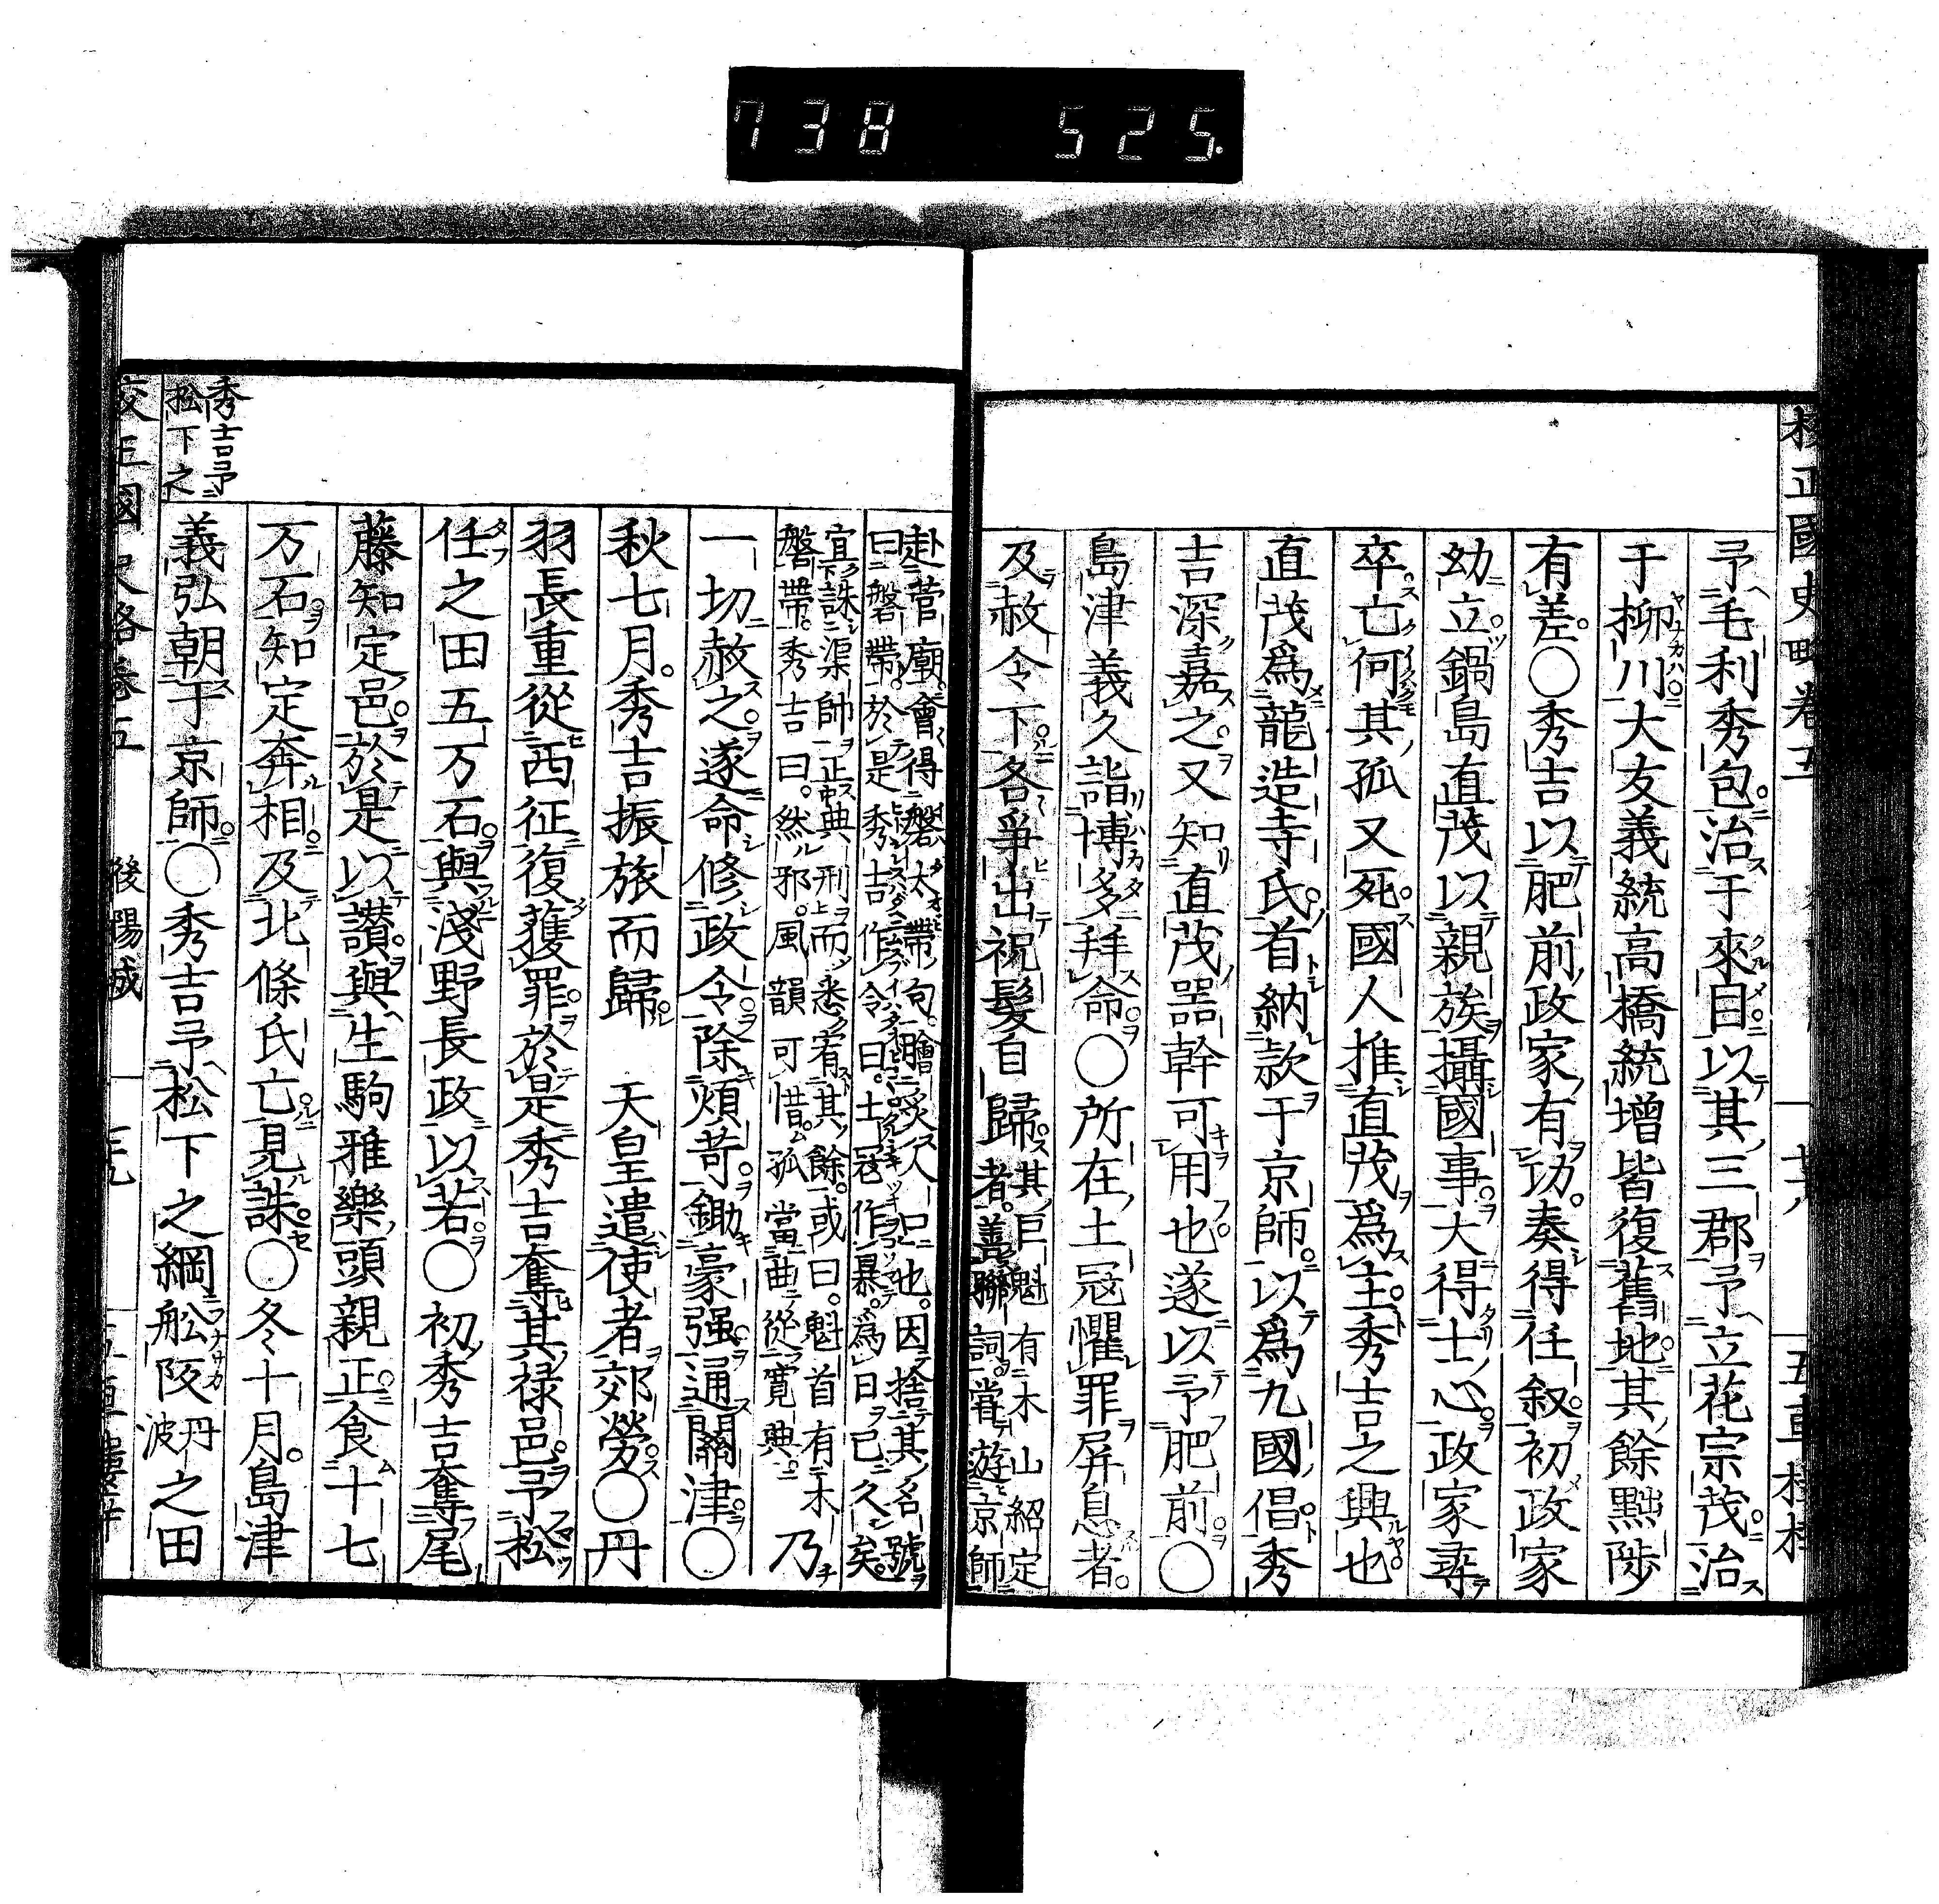 738 525.
校正國史略卷五
五車樓梓
予毛利秀包治于來目以其三郡予立花宗茂治
于柳川大友義統高橋統增皆復舊地其餘黜陟
有差〇秀吉以肥前政家有功奏得任叙初政家
幼立鍋島直茂以親族攝國事大得士心政家尋
卒亡何其孤又死國人推直茂爲主秀吉之興也
直茂爲龍造寺氏首納款于京師以爲九國倡秀
吉深嘉之又知直茂器幹可用也遂以予肥前〇
島津義久詣博多拜命〇所在土寇懼罪屏息者
及赦令下各爭出祝髮自歸
其巨魁有木山紹定
者善聯詞甞遊京師
赴菅廟會得磐太帶句膾炙人口也因捨其名號
曰磐帶於是秀吉作令曰士寇作暴爲日已久矣
宜誅渠帥正典刑而悉宥其餘或曰魁首有木
磐帶秀吉曰然邪風韻可惜孤當曲從寬典
乃
一切赦之遂命修政令除煩苛鋤豪强通關津〇
秋七月秀吉振旅而歸 天皇遣使者郊勞〇丹
羽長重從西征復獲罪於是秀吉奪其祿邑予松
任之田五万石與淺野長政以若〇初秀吉奪尾
藤知定邑於是以讃與生駒雅樂頭親正食十七
万石知定奔相及北條氏亡見誅〇冬十月島津
義弘朝于京師〇秀吉予松下之綱舩阪丹波之田
秀吉予
松下之
校正國史略卷五 後陽成